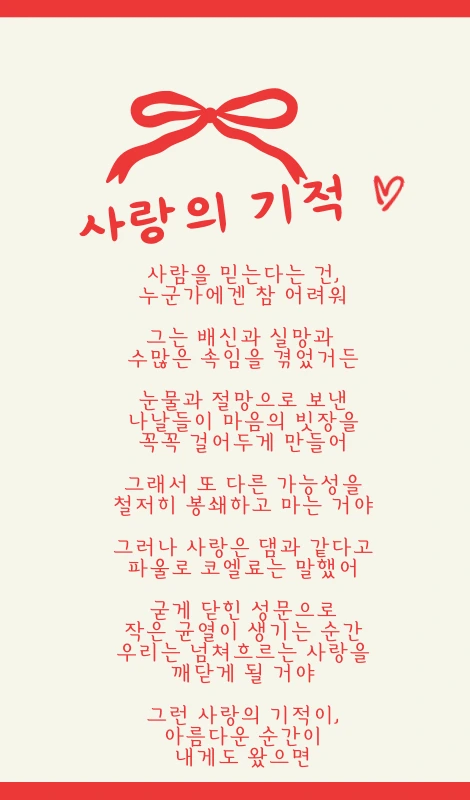 사랑의 기적
사람을 믿는다는 건,
누군가에겐 참 어려워
그는 배신과 실망과
수많은 속임을 겪었거든
눈물과 절망으로 보낸
나날들이 마음의 빗장을
꼭꼭 걸어두게 만들어
그래서 또 다른 가능성을
철저히 봉쇄하고 마는 거야
그러나 사랑은 댐과 같다고
파울로 코엘료는 말했어
굳게 닫힌 성문으로
작은 균열이 생기는 순간
우리는 넘쳐흐르는 사랑을
깨닫게 될 거야
그런 사랑의 기적이,
아름다운 순간이
내게도 왔으면